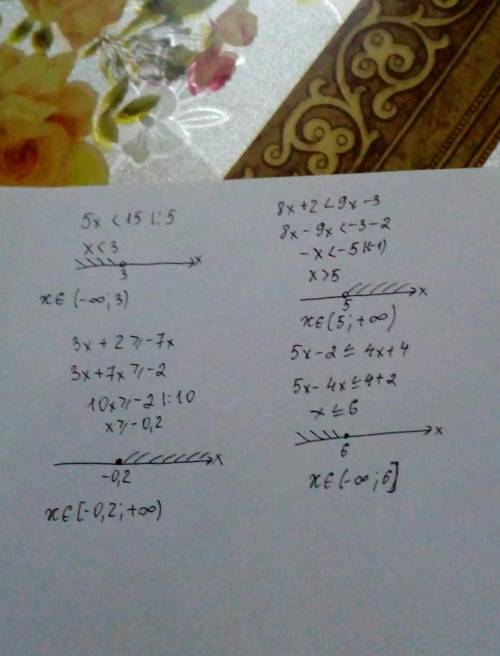 5x < 15 |:5
x < 3
x
3
x ∈ (-∞; 3)
3x + 2 ⩾ -7x
3x + 7x ⩾ -2
10x ⩾ -2 |:10
x ⩾ -0,2
x
-0,2
x ∈ [-0,2; +∞)
8x + 2 < 9x - 3
8x - 9x < -3 - 2
-x < -5 |(-1)
x > 5
x
5
x ∈ (5; +∞)
5x - 2 ≤ 4x + 4
5x - 4x ≤ 4 + 2
x ≤ 6
x
6
x ∈ (-∞; 6]